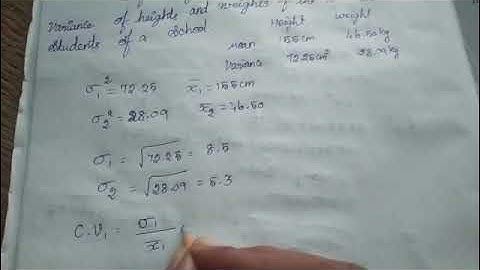 Variance of heights and weights of the
Students of a School
Height weight
Mean 155cm 46.50kg
Variance 72.25cm² 28.09kg
σ₁² = 72.25 x̄₁ = 155cm
σ₂² = 28.09 x̄₂ = 46.50
σ₁ = √72.25 = 8.5
σ₂ = √28.09 = 5.3
C.V₁ = σ₁ / x̄₁